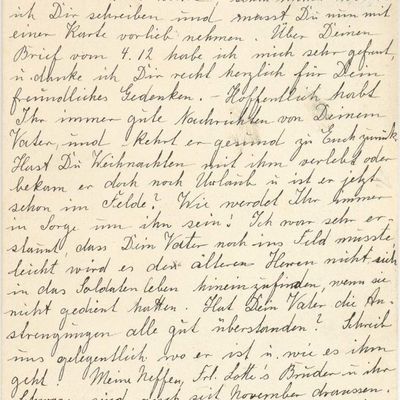 ich Dir schreiben und musst Du nun mit
einer Karte vorlieb nehmen. Über Deinen
Brief vom 4.12 habe ich mich sehr gefreut,
u. danke ich Dir recht herzlich für Dein
freundliches Gedenken. – Hoffentlich habt
Ihr immer gute Nachrichten von Deinem
Vater, und kehrt er gesund zu Euch zurück.
Hast Du Weihnachten mit ihm verlebt oder
bekam er doch noch Urlaub u. ist er jetzt
schon im Felde? Wie werdet Ihr immer
in Sorge um ihn sein! Ich war sehr er-
staunt, dass Dein Vater noch ins Feld musste,
leicht wird es den älteren Herren nicht sich
in das Soldatenleben hineinzufinden, wenn sie
nicht gedient hatten. Hat Dein Vater die An-
strengungen alle gut überstanden? Schreib
uns gelegentlich wo er ist u. wie es ihm
geht. Meine Neffen, Frl. Lotte's Bruder u. ihr
sind auch seit November draussen.